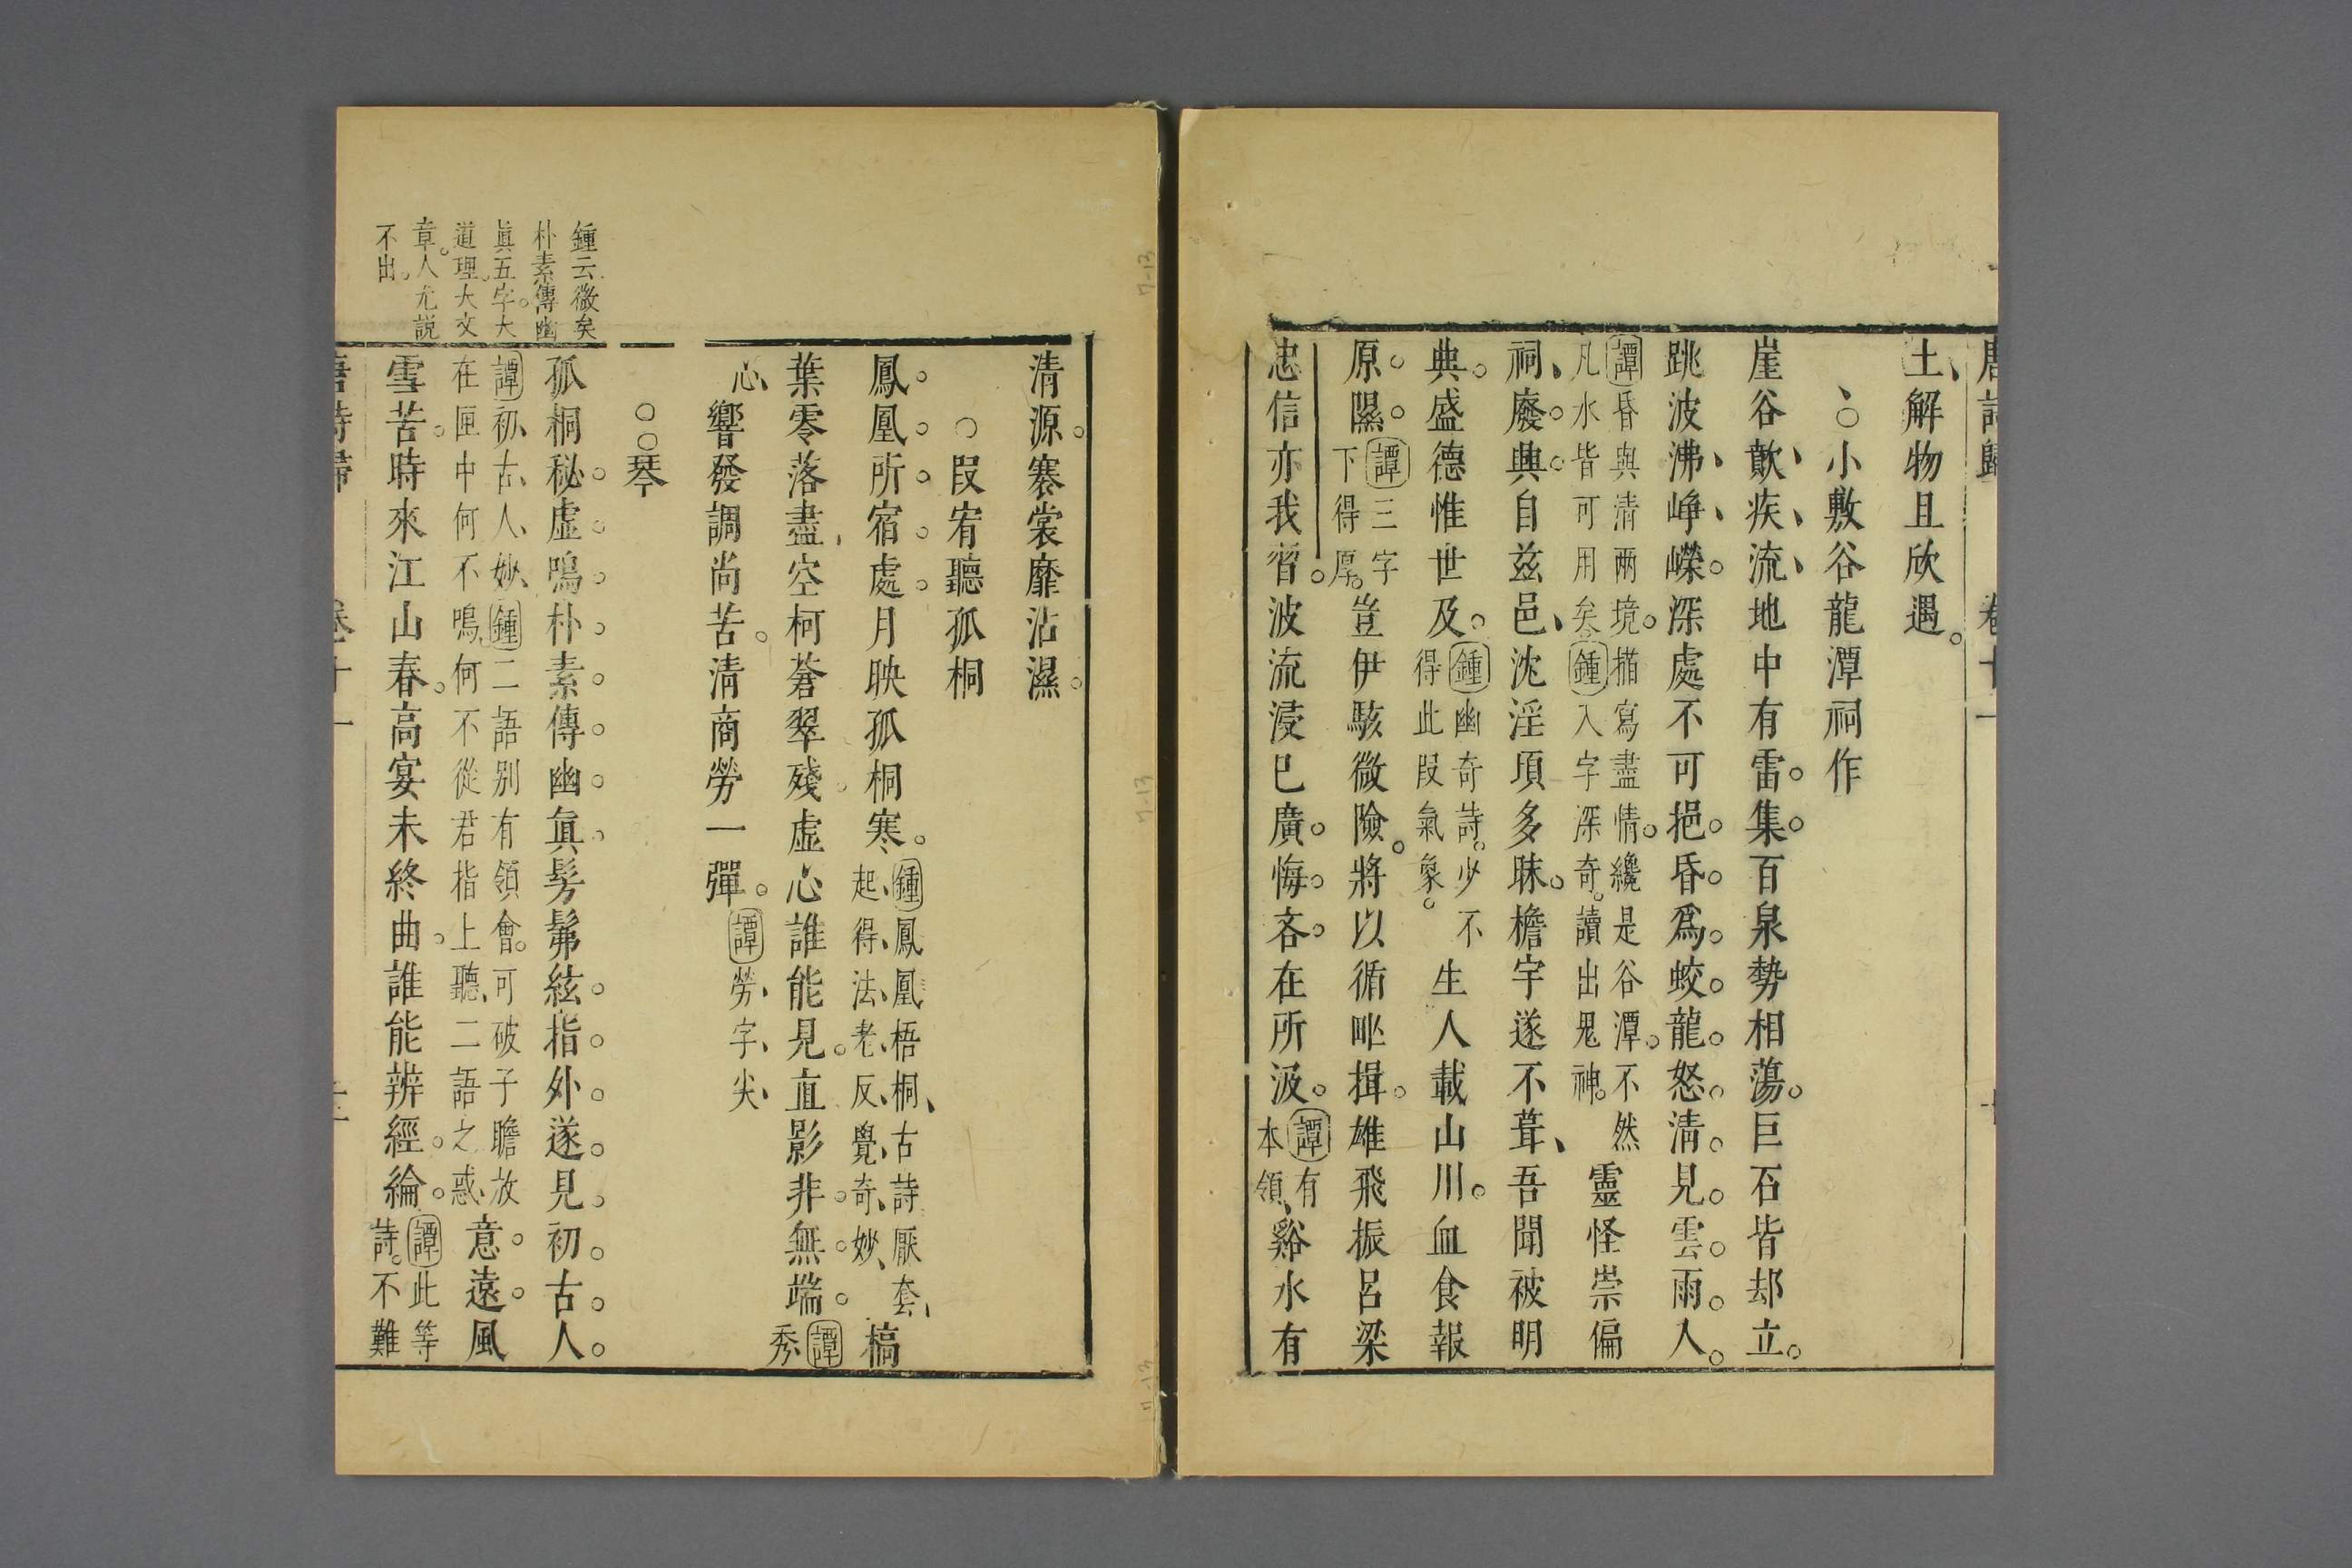 唐詩歸 卷十一
土解物且欣遇。
小敷谷龍潭祠作
崖谷歕疾流地中有雷集百泉勢相蕩巨石皆却立。
跳波沸崢嶸深處不可挹昏爲蛟龍怒清見雲雨人
譚昏與清兩境描寫盡情纔是谷潭不然
凡水皆可用矣鍾入字深奇讀出鬼神
靈怪崇偏
祠廢興自兹邑沈淫項多昧檐宇遂不葺吾聞被明
典盛德惟世及
鍾幽奇詩少不
得此段氣象
生人載山川血食報
原隰
譚三字
下得厚
豈伊駭微險將以循甿揖雄飛振呂梁
忠信亦我習波流浸已廣悔吝在所汲
譚有
本領
谿水有
清源褰裳靡沾濕
段宥聽孤桐
鳳凰所宿處月映孤桐寒
鍾鳳凰梧桐古詩厭套
起得法老反覺奇妙
槁
葉零落盡空柯蒼翠殘虛心誰能見直影非無端
譚
秀
心
響發調尚苦清商勞一彈
譚
勞字尖
琴
鍾云微矣
朴素傳幽
眞五字大
道理大文
章人尤説
不出
孤桐秘虛鳴朴素傳幽眞髣髴絃指外遂見初古人
譚初古人妙鍾二語别有領會可破子瞻放
在匣中何不鳴何不從君指上聽二語之惑
意遠風
雪苦時來江山春高宴未終曲誰能辨經綸
譚此等
詩不難
唐詩歸 卷十一